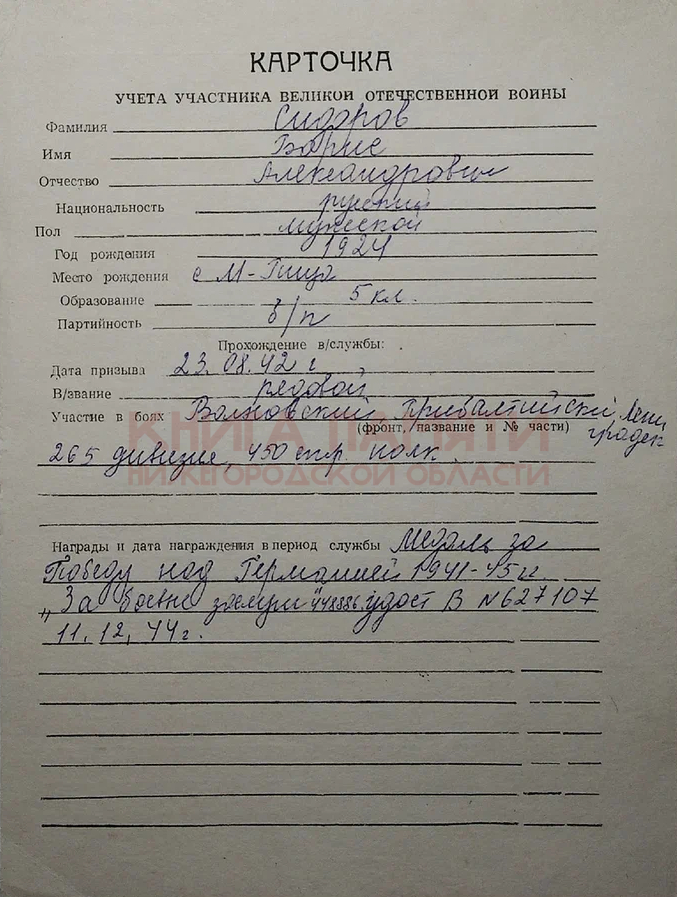 КАРТОЧКА
УЧЕТА УЧАСТНИКА ВЕЛИКОЙ ОТЕЧЕСТВЕННОЙ ВОЙНЫ
Фамилия Сидоров
Имя Борис
Отчество Александрович
Национальность русский
Пол мужской
Год рождения 1924
Место рождения с М-Пица
Образование 5 кл.
Партийность б/п
Прохождение в/службы:
Дата призыва 23.08.42 г
В/звание рядовой
Участие в боях Волховский Прибалтийский Ленинградск
(фронт, название и № части)
265 дивизия, 450 стр. полк.
КНИГА ПАМЯТИ
НИЖЕГОРОДСКОЙ ОБЛАСТИ
Награды и дата награждения в период службы Медаль за
Победу над Германией 1941-45 гг.
„За боевые заслуги" 448886 удост В №627107
11.12.44г.